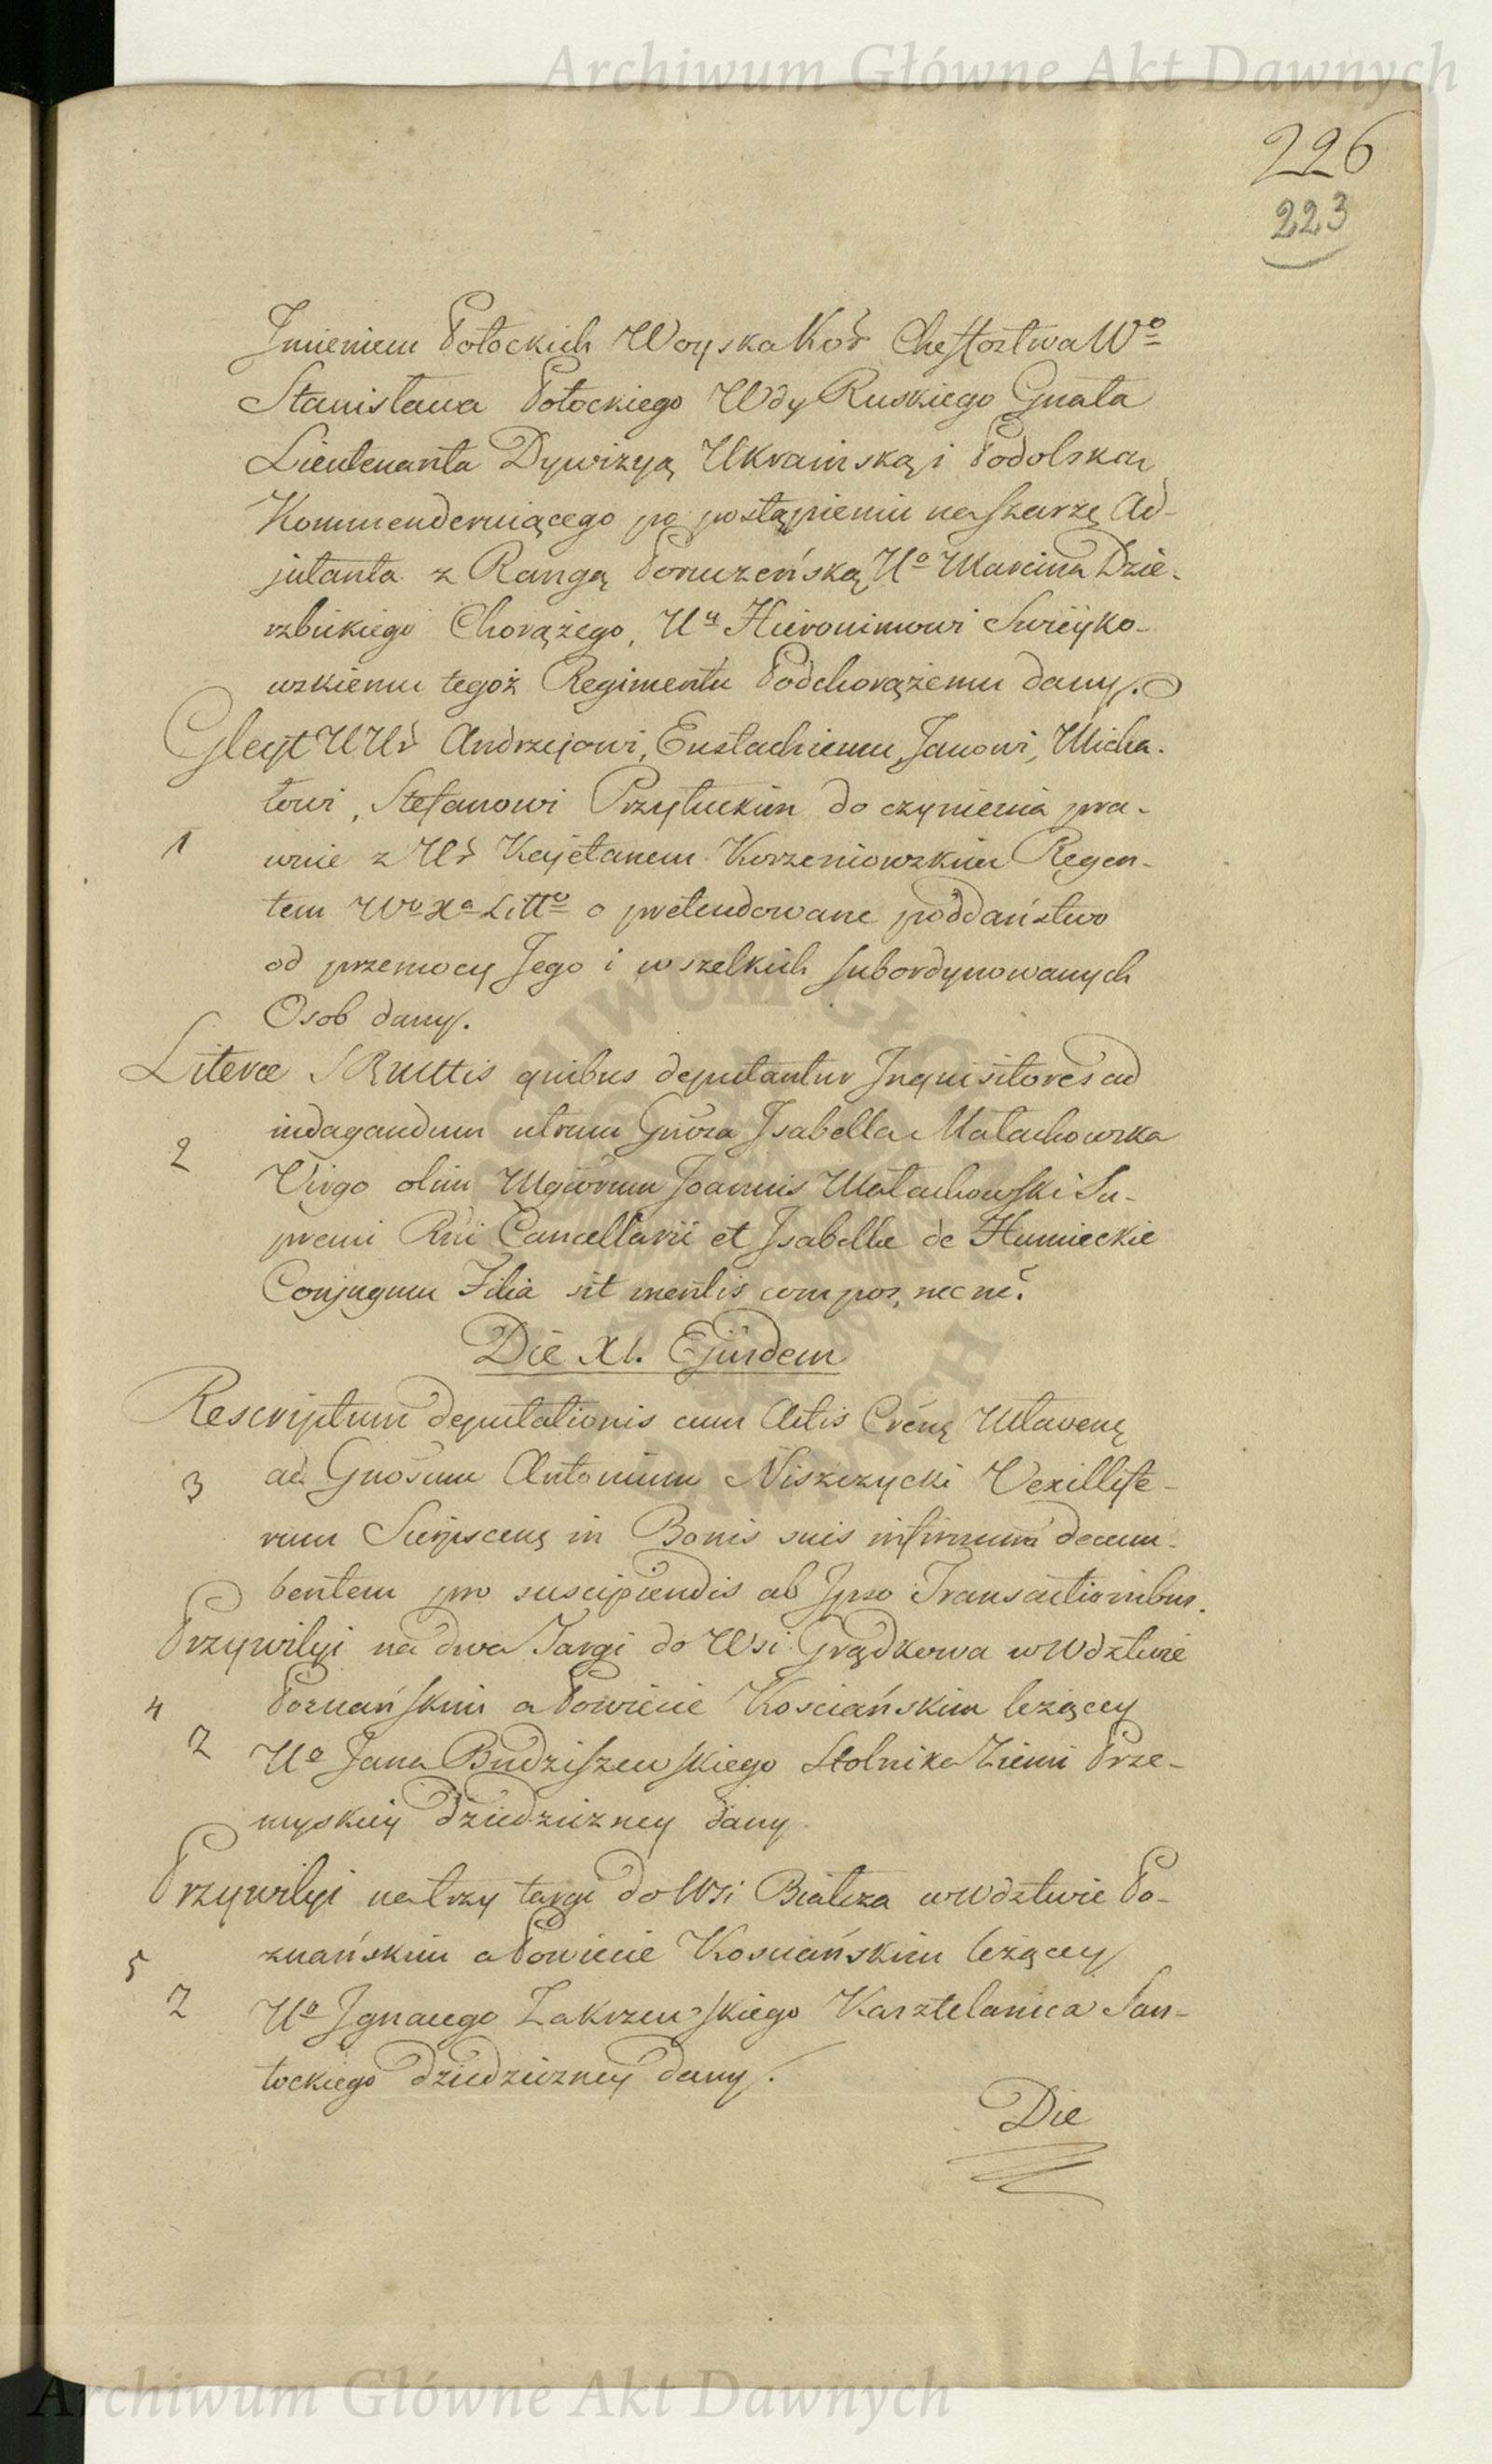 Archiwum Główne Akt Dawnych
226
223
Jmieniem Potockich Woyska Kor Cheffostwa Wo
Stanisława Potockiego Wdy Ruskiego Gnała
Lieutenanta Dywizyą Ukrainską i Podolską
Kommenderuiącego po postąpieniu na szarżę Ad-
jutanta z Rangą Poruczeńską Uo Marcina Dzie-
rzbickiego Chorążego, Uu Hieronimowi Swieyko-
wskiemu tegoż Regimentu Podchorążemu dany.
Gleyt UUr Andrzejowi, Eustachiemu, Janowi, Micha-
łowi, Stefanowi Przyłuckim do czynienia pra-
1 wnie z Ur Kajetanem Korzeniowskim Regen-
tem Wo Xa Litto o pretendowane poddaństwo
od przemocy Jego i wszelkich subordynowanych
Osob dany.
Literæ quibus deputantur Inquisitores ad
indagandum utrum Gnosa Isabella Małachowska
2
Virgo olim Mgcorum Joannis Małachowski Su-
premi Rni Cancellarii et Isabellæ de Humieckie
Conjugum Filia sit mentis compos, nec ne?
Die XI. Ejusdem
Rescriptum deputationis cum Actis Crenę Mlavenę
3 ad Gnosum Antonium Niszczycki Vexillife-
rum Sierpscenę in Bonis suis infirmum decum-
bentem pro suscipiendis ab Ipso Transactionibus.
Przywiley na dwa Targi do Wsi Grądkowa w Wdztwie
4 Poznańskim a Powiecie Kosciańskim leżącey
2 Uo Jana Budziszewskiego Stolnika Ziemi Prze-
myskiey dziedziczney dany
Przywiley na trzy targi do Wsi Białcza w Wdztwie Po-
5 znańskim a Powiecie Kosciańskim leżącey
2 Uo Ignacego Zakrzewskiego Kasztelanica San-
tockiego dziedziczney dany.
Die
Archiwum Główne Akt Dawnych